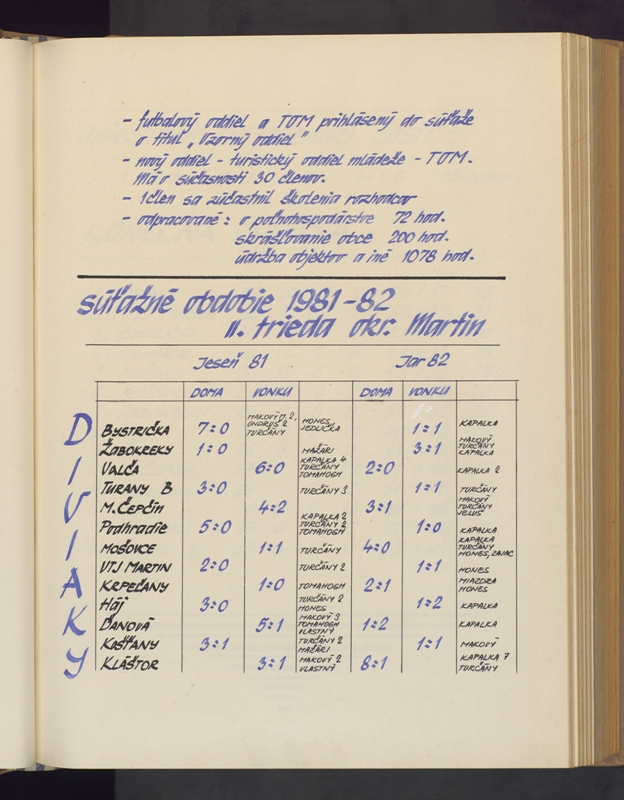 - futbalový oddiel a TOM prihlásený do súťaže
o titul „Vzorný oddiel"
- nový oddiel - turistický oddiel mládeže - TOM.
Má v súčasnosti 30 členov.
- 1 člen sa zúčastnil školenia rozhodcov
- odpracované: v poľnohospodárstve 72 hod.
skrášľovanie obce 200 hod.
údržba objektov a iné 1078 hod.
súťažné obdobie 1981-82
II. trieda okr. Martin
Jeseň 81 Jar 82
DOMA VONKU DOMA VONKU
DIVIAKY
BYSTRIČKA 7:0 MAKOVÝ M. 2, ONDRUŠ 2 TURČÁNY HONES JEDLIČKA 1:1 KAPALKA
ŽABOKREKY 1:0 MAŽÁRI 3:1 MAKOVÝ TURČÁNY KAPALKA
VALČA 6:0 KAPALKA 4 TURČÁNY TOMAHOGH 2:0 KAPALKA 2
TURANY B 3:0 TURČÁNY 3 1:1 TURČÁNY
M. ČEPČÍN 4:2 KAPALKA 2 3:1 MAKOVÝ TURČÁNY VELUS
Podhradie 5:0 TURČÁNY 2 TOMAHOGH 1:0 KAPALKA
MOŠOVCE 1:1 TURČÁNY 4:0 KAPALKA TURČÁNY HONES, ZAJAC
VTJ MARTIN 2:0 TURČÁNY 2 1:1 HONES
KRPEĽANY 1:0 TOMAHOGH 2:1 MIAZDRA HONES
HÁJ 3:0 TURČÁNY 2 HONES 1:2 KAPALKA
ĎANOVÁ 5:1 MAKOVÝ 3 TOMAHOGH VLASTNÝ 1:2 KAPALKA
KOŠŤANY 3:1 TURČÁNY 2 MAŽÁRI 1:1 MAKOVÝ
KLÁŠTOR 3:1 MAKOVÝ 2 VLASTNÝ 8:1 KAPALKA 7 TURČÁNY